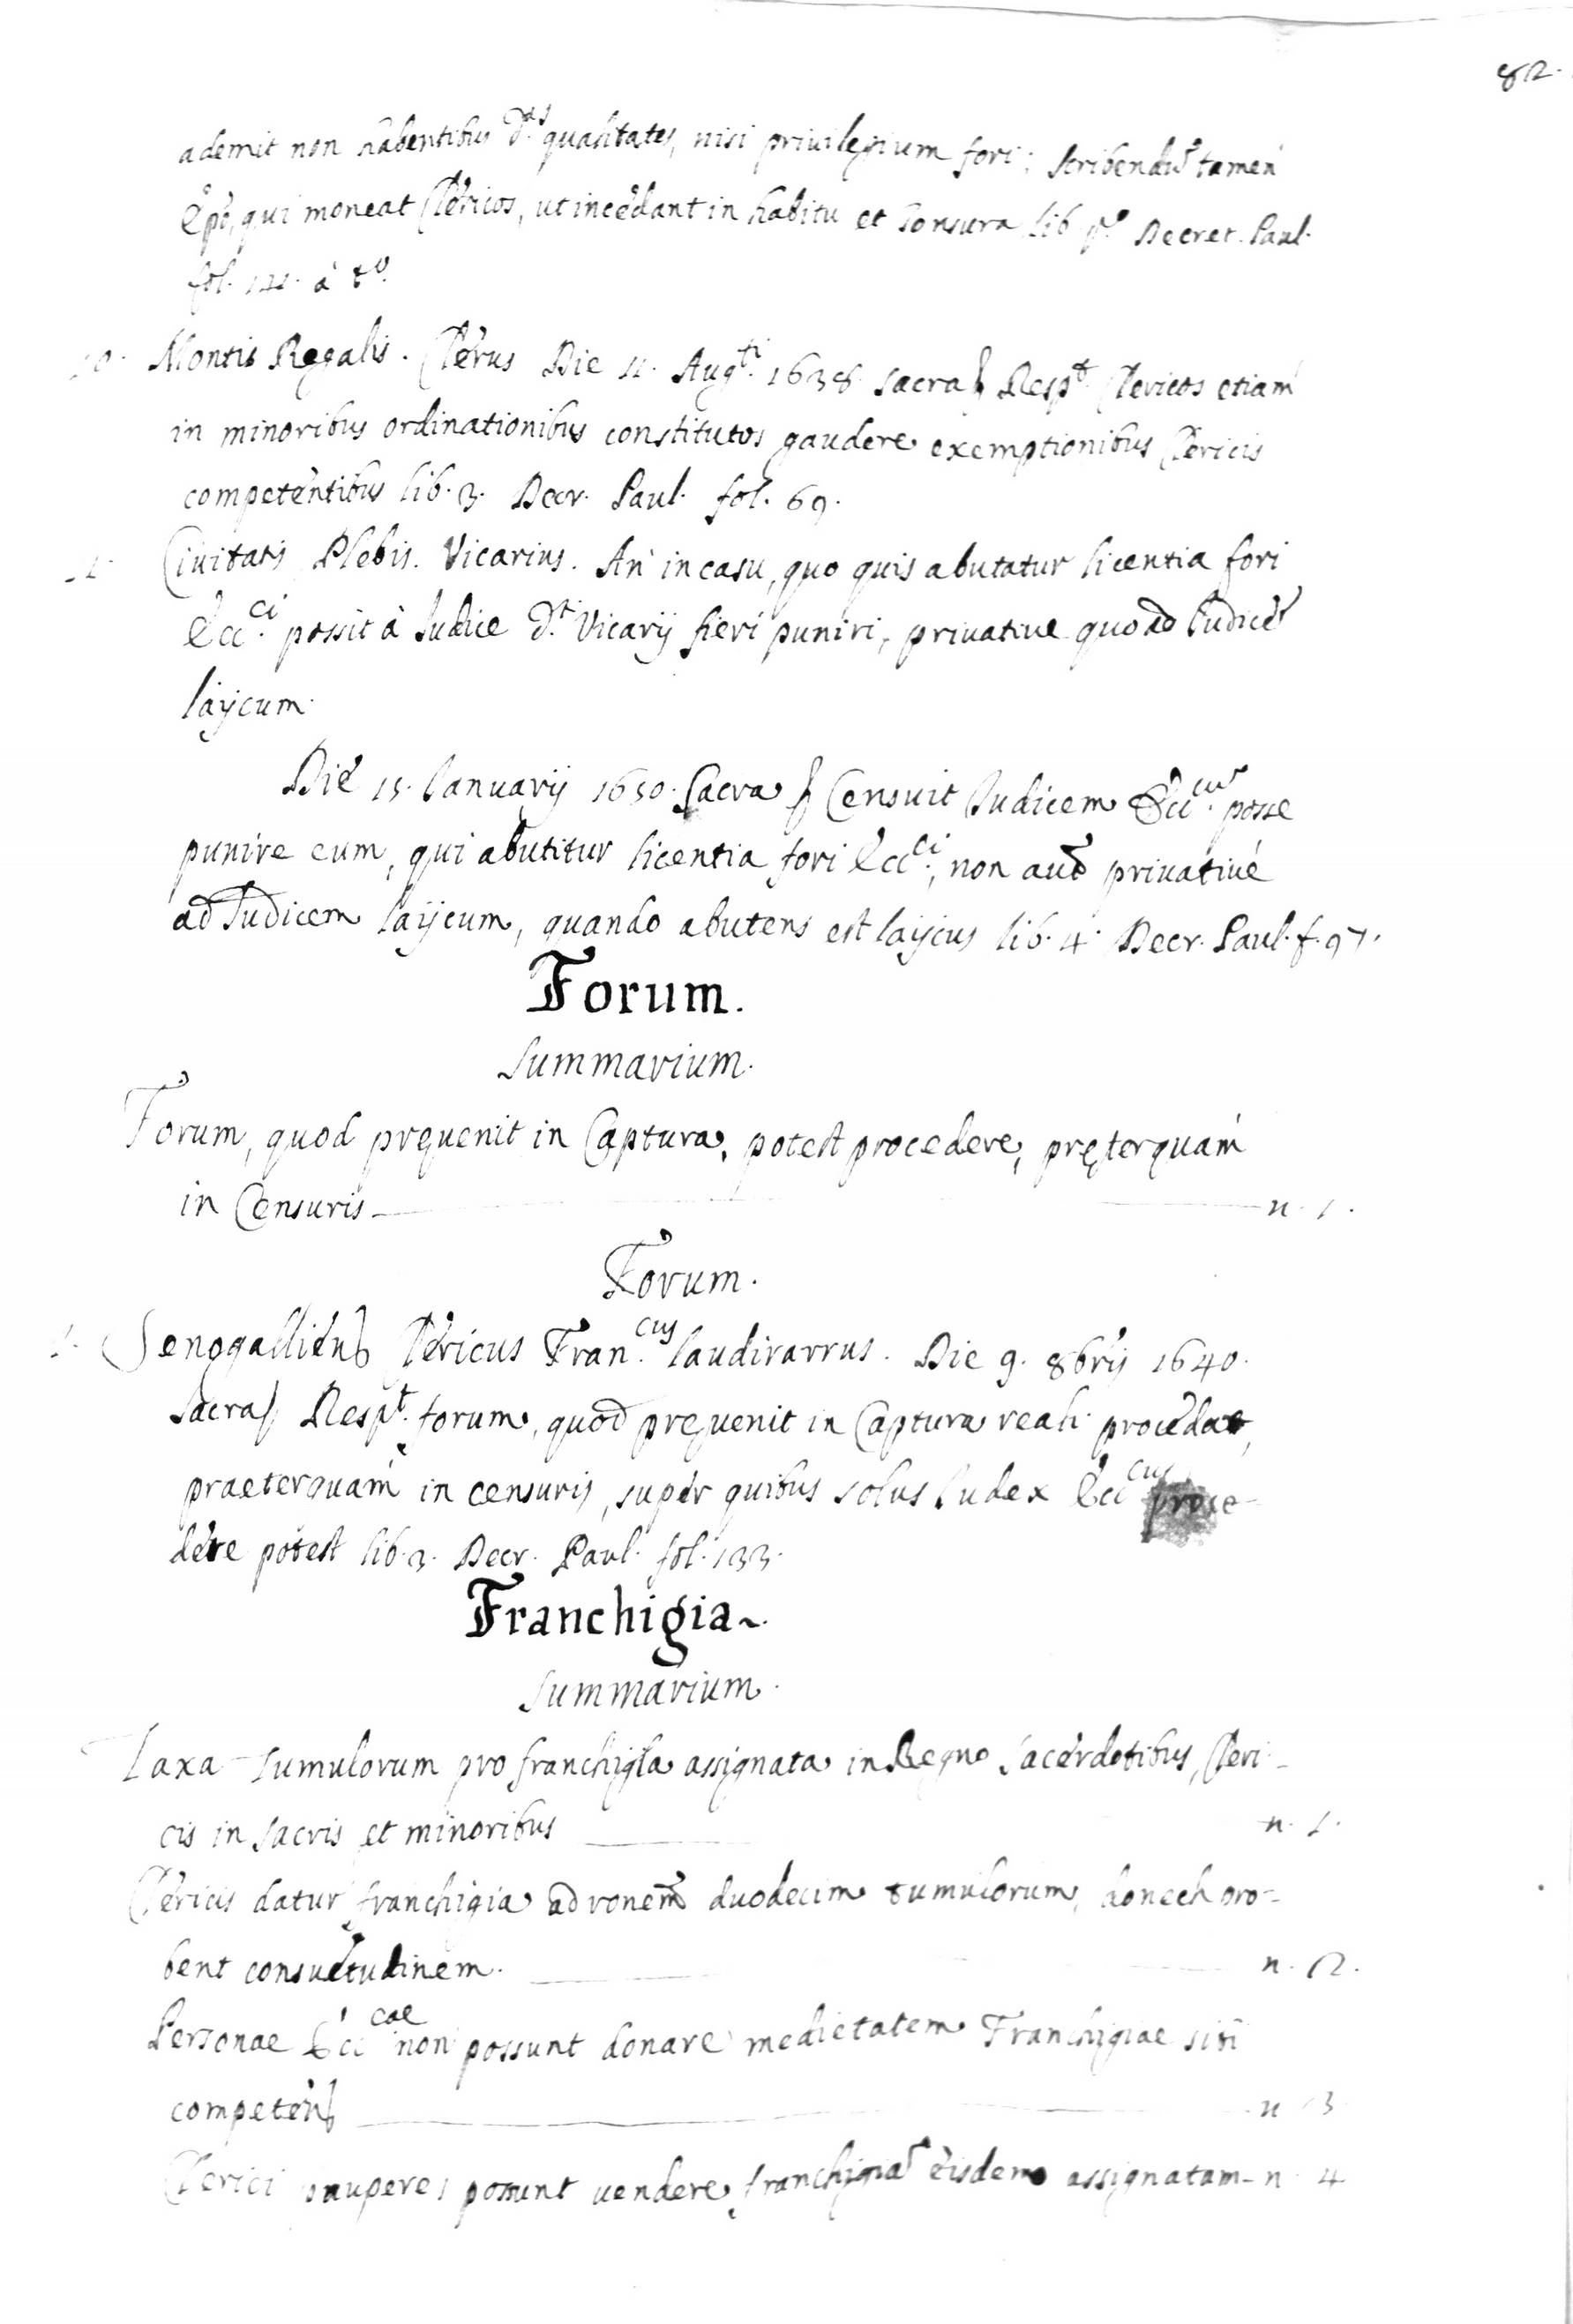 82.
ademit non habentibus d.as qualitates, nisi privilegium fori; scribendũ tamen
Ep̃o, qui moneat Clericos, ut incedant in habitu et Tonsura lib. p.o Decret. Paul.
fol. 121. à t.o
Montis Regalis. Clerus Die 11. Aug.ti 1638. Sacra Resp.t Clericos etiam
in minoribus ordinationibus constitutos gaudere exemptionibus Clericis
competentibus lib. 3. Decr. Paul. fol. 69.
Civitatis Plebis. Vicarius. An in casu, quo quis abutatur licentia fori
Ecc.ci possit à Iudice d.ti Vicarij fieri puniri, privative quoad Iudicẽ
laijcum.
Die 15. Ianuarij 1650. Sacra Censuit Iudicem Ecc.cũ posse
punire eum, qui abutitur licentia fori Ecc.ci, non aut̃ privativé
ad Iudicem laijcum, quando abutens est laijcus lib. 4. Decr. Paul. f. 97.
Forum.
Summarium.
Forum, quod pręvenit in Captura, potest procedere, pręterquam
in Censuris n. 1.
Forum.
1. Senogalliens Clericus Fran.cus Die 9. 8brij 1640.
Sacra Resp.t forum, quod pręvenit in Captura reali procedat,
praeterquam in censuris, super quibus solus Iudex Ecc.cus proce-
dere potest lib. 3. Decr. Paul. fol. 133.
Franchigia.
Summarium.
Taxa Tumulorum pro franchigia assignata in Regno Sacerdotibus, Cleri-
cis in Sacris et minoribus n. 1.
Clericis datur franchigia ad ronem̃ duodecim tumulorum, donech pro-
bent consuetudinem. n. 2.
Personae Ecc.cae non possunt donare medietatem Franchigiae sibi
competens n. 3
Clerici pauperes possunt vendere franchigiã eisdem assignatam - n. 4